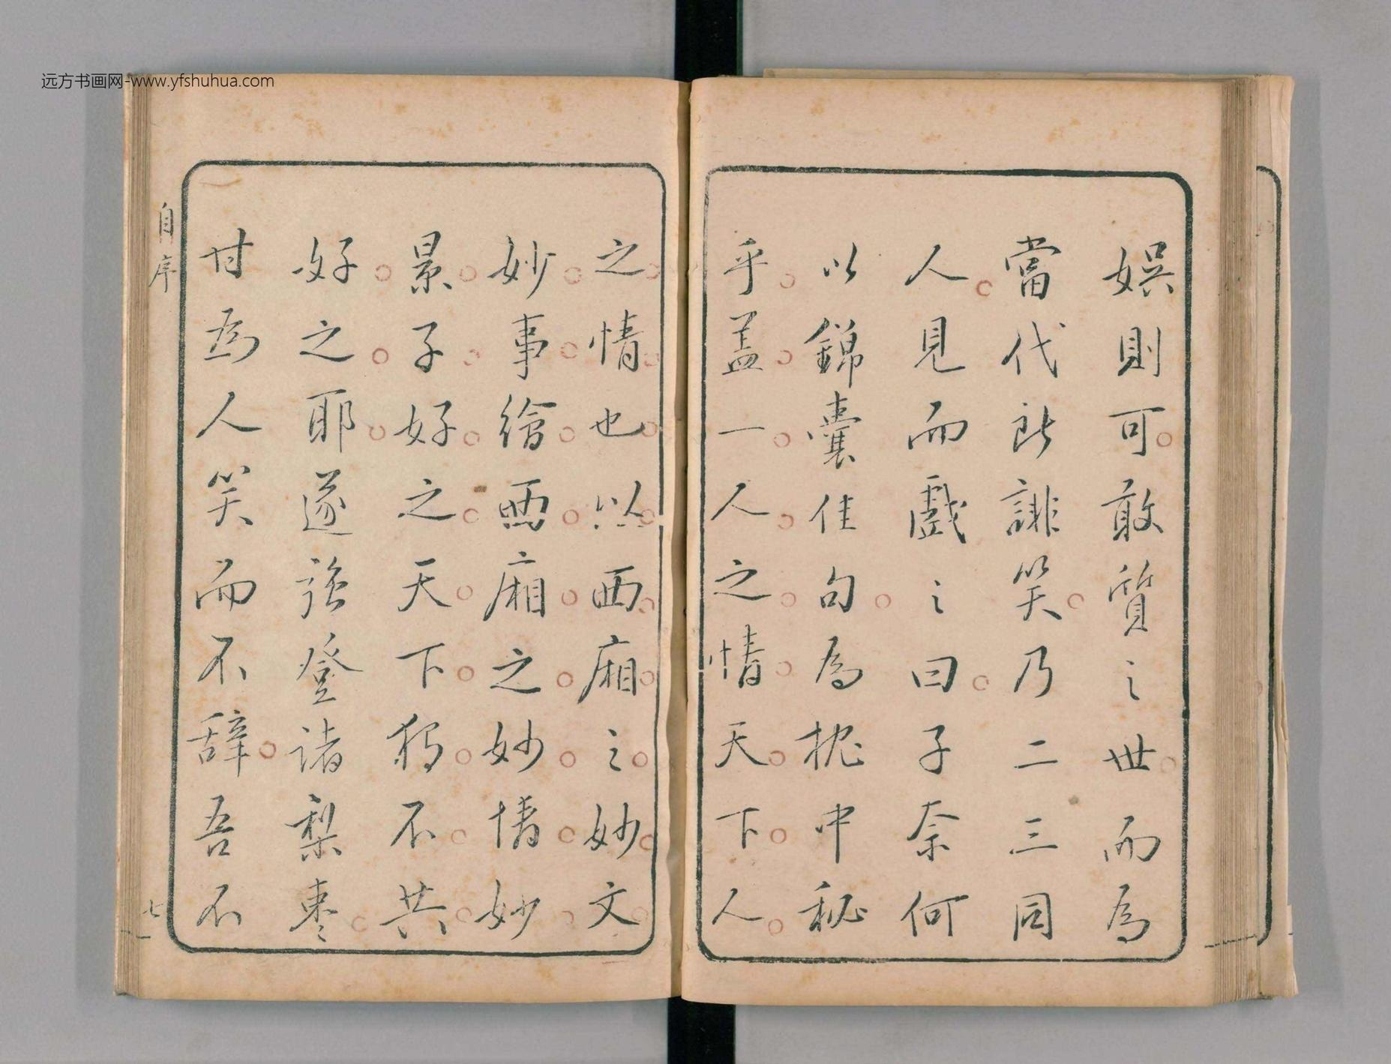 远方书画网-www.yfshuhua.com
娯則可敢質之世而為
當代所誹笑乃二三同
人見而戲之曰子奈何
以錦囊佳句為枕中秘
乎盖一人之情天下人
之情也以西廂之妙文
妙事繪西廂之妙情妙
景子好之天下独不共
好之耶遂強登諸梨棗
甘為人笑而不辞吾不
自序
七